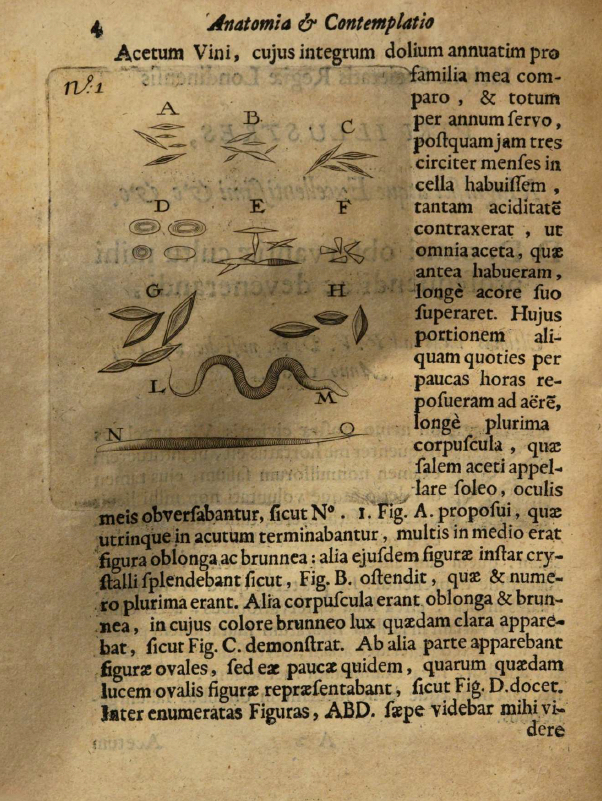 4 Anatomia & Contemplatio
Acetum Vini, cujus integrum dolium annuatim pro
Nº: 1
familia mea com-
paro, & totum
per annum ſervo,
poſtquam jam tres
circiter menſes in
cella habuiſſem,
tantam aciditatē
contraxerat, ut
omnia aceta, quæ
antea habueram,
longè acore ſuo
ſuperaret. Hujus
portionem ali-
quam quoties per
paucas horas re-
poſueram ad aërē,
longè plurima
corpuſcula, quæ
ſalem aceti appel-
lare ſoleo, oculis
A B C
D E F
G H
L M
N O
meis obverſabantur, ſicut Nº. 1. Fig. A. propoſui, quæ
utrinque in acutum terminabantur, multis in medio erat
figura oblonga ac brunnea: alia ejuſdem figuræ inſtar cry-
ſtalli ſplendebant ſicut, Fig. B. oſtendit, quæ & nume-
ro plurima erant. Alia corpuſcula erant oblonga & brun-
nea, in cujus colore brunneo lux quædam clara appare-
bat, ſicut Fig. C. demonſtrat. Ab alia parte apparebant
figuræ ovales, ſed eæ paucæ quidem, quarum quædam
lucem ovalis figuræ repræſentabant, ſicut Fig. D. docet.
Inter enumeratas Figuras, ABD. ſæpe videbar mihi vi-
dere